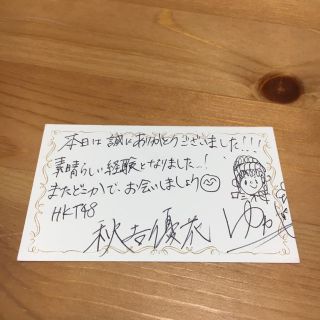 本日は誠にありがとうございました!!!
素晴らしい経験となりました..!
またどこかで、お会いしましょう
HKT48
秋吉優花
ゆか